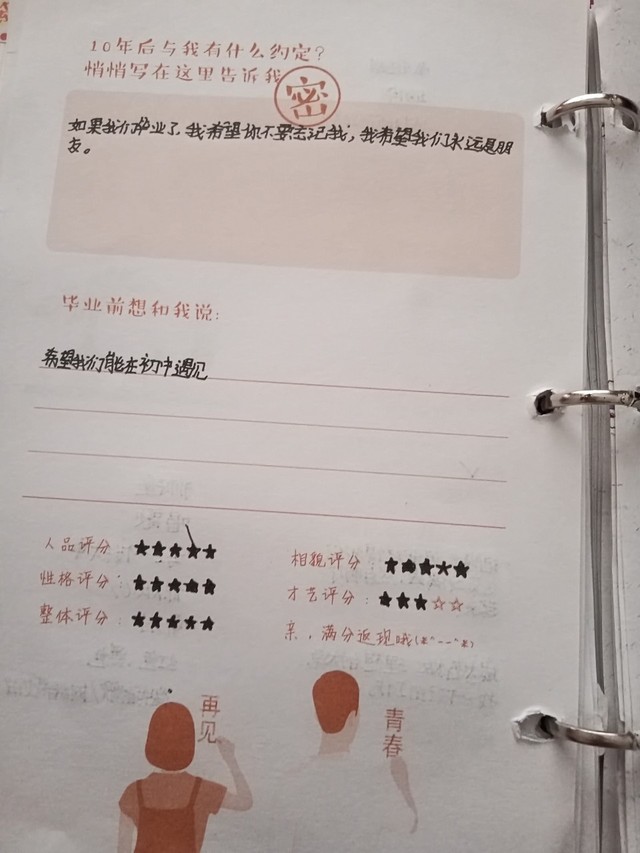 10年后与我有什么约定？
悄悄写在这里告诉我
密
如果我们毕业了，我希望你不要忘记我，我希望我们永远是朋
友。
毕业前想和我说：
希望我们能在初中遇见
人品评分：★★★★★
相貌评分：★★★★★
性格评分：★★★★★
才艺评分：★★★☆☆
整体评分：★★★★★
亲，满分返现哦(*^--^*)
再见
青春